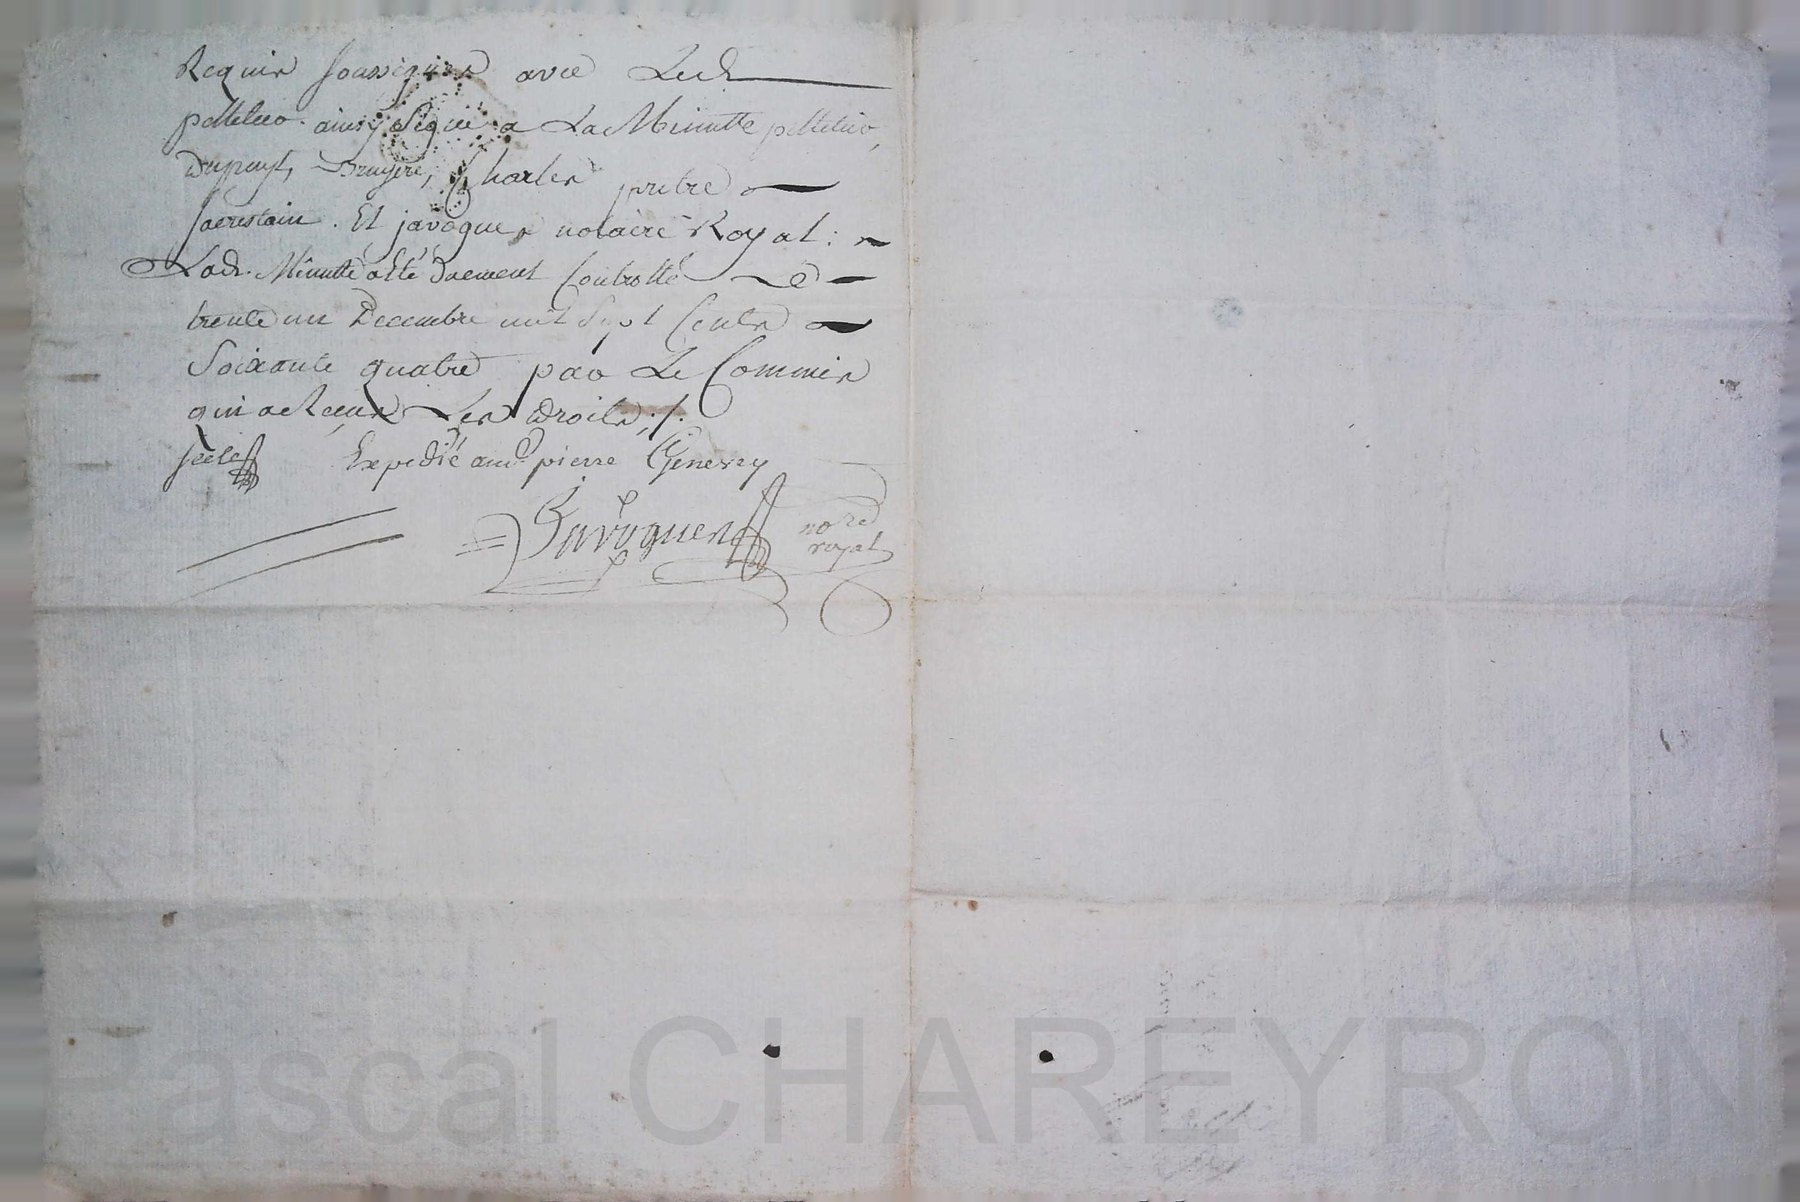 Requis soussignés avec Led.
pelletier. ainsy Signé a La Minutte pelletier,
Dupuyt, Bruyere, Charles pretre
sacristain. Et javogues notaire Royal :
Lad. Minutte a été duement Controllé Le
trente un Decembre mil Sept Cents
Soixante quatre par Le Commis
qui a Reçus Les droits ;/.
scelé Expedié aud. pierre Genevey
Javogues no.re
royal
Pascal CHAREYRON